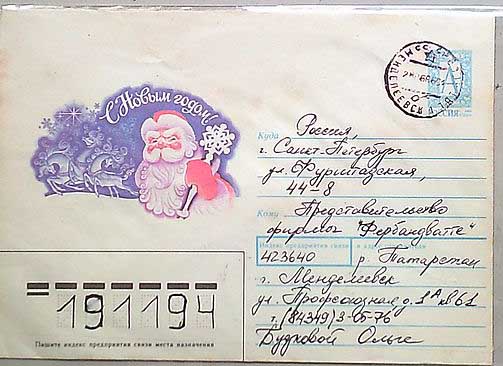 С Новым годом!
РОССИЯ
Куда Россия,
г. Санкт-Петербург
ул. Фурштадская,
44-8
Кому Представительство
фирмы "Фербандватте"
Индекс предприятия связи и адрес
423640 р. Татарстан
г. Менделеевск
ул. Профсоюзная д. 1А кв 61
т. (84349) 3-05-76
Будковой Ольге
191194
Пишите индекс предприятия связи места назначения